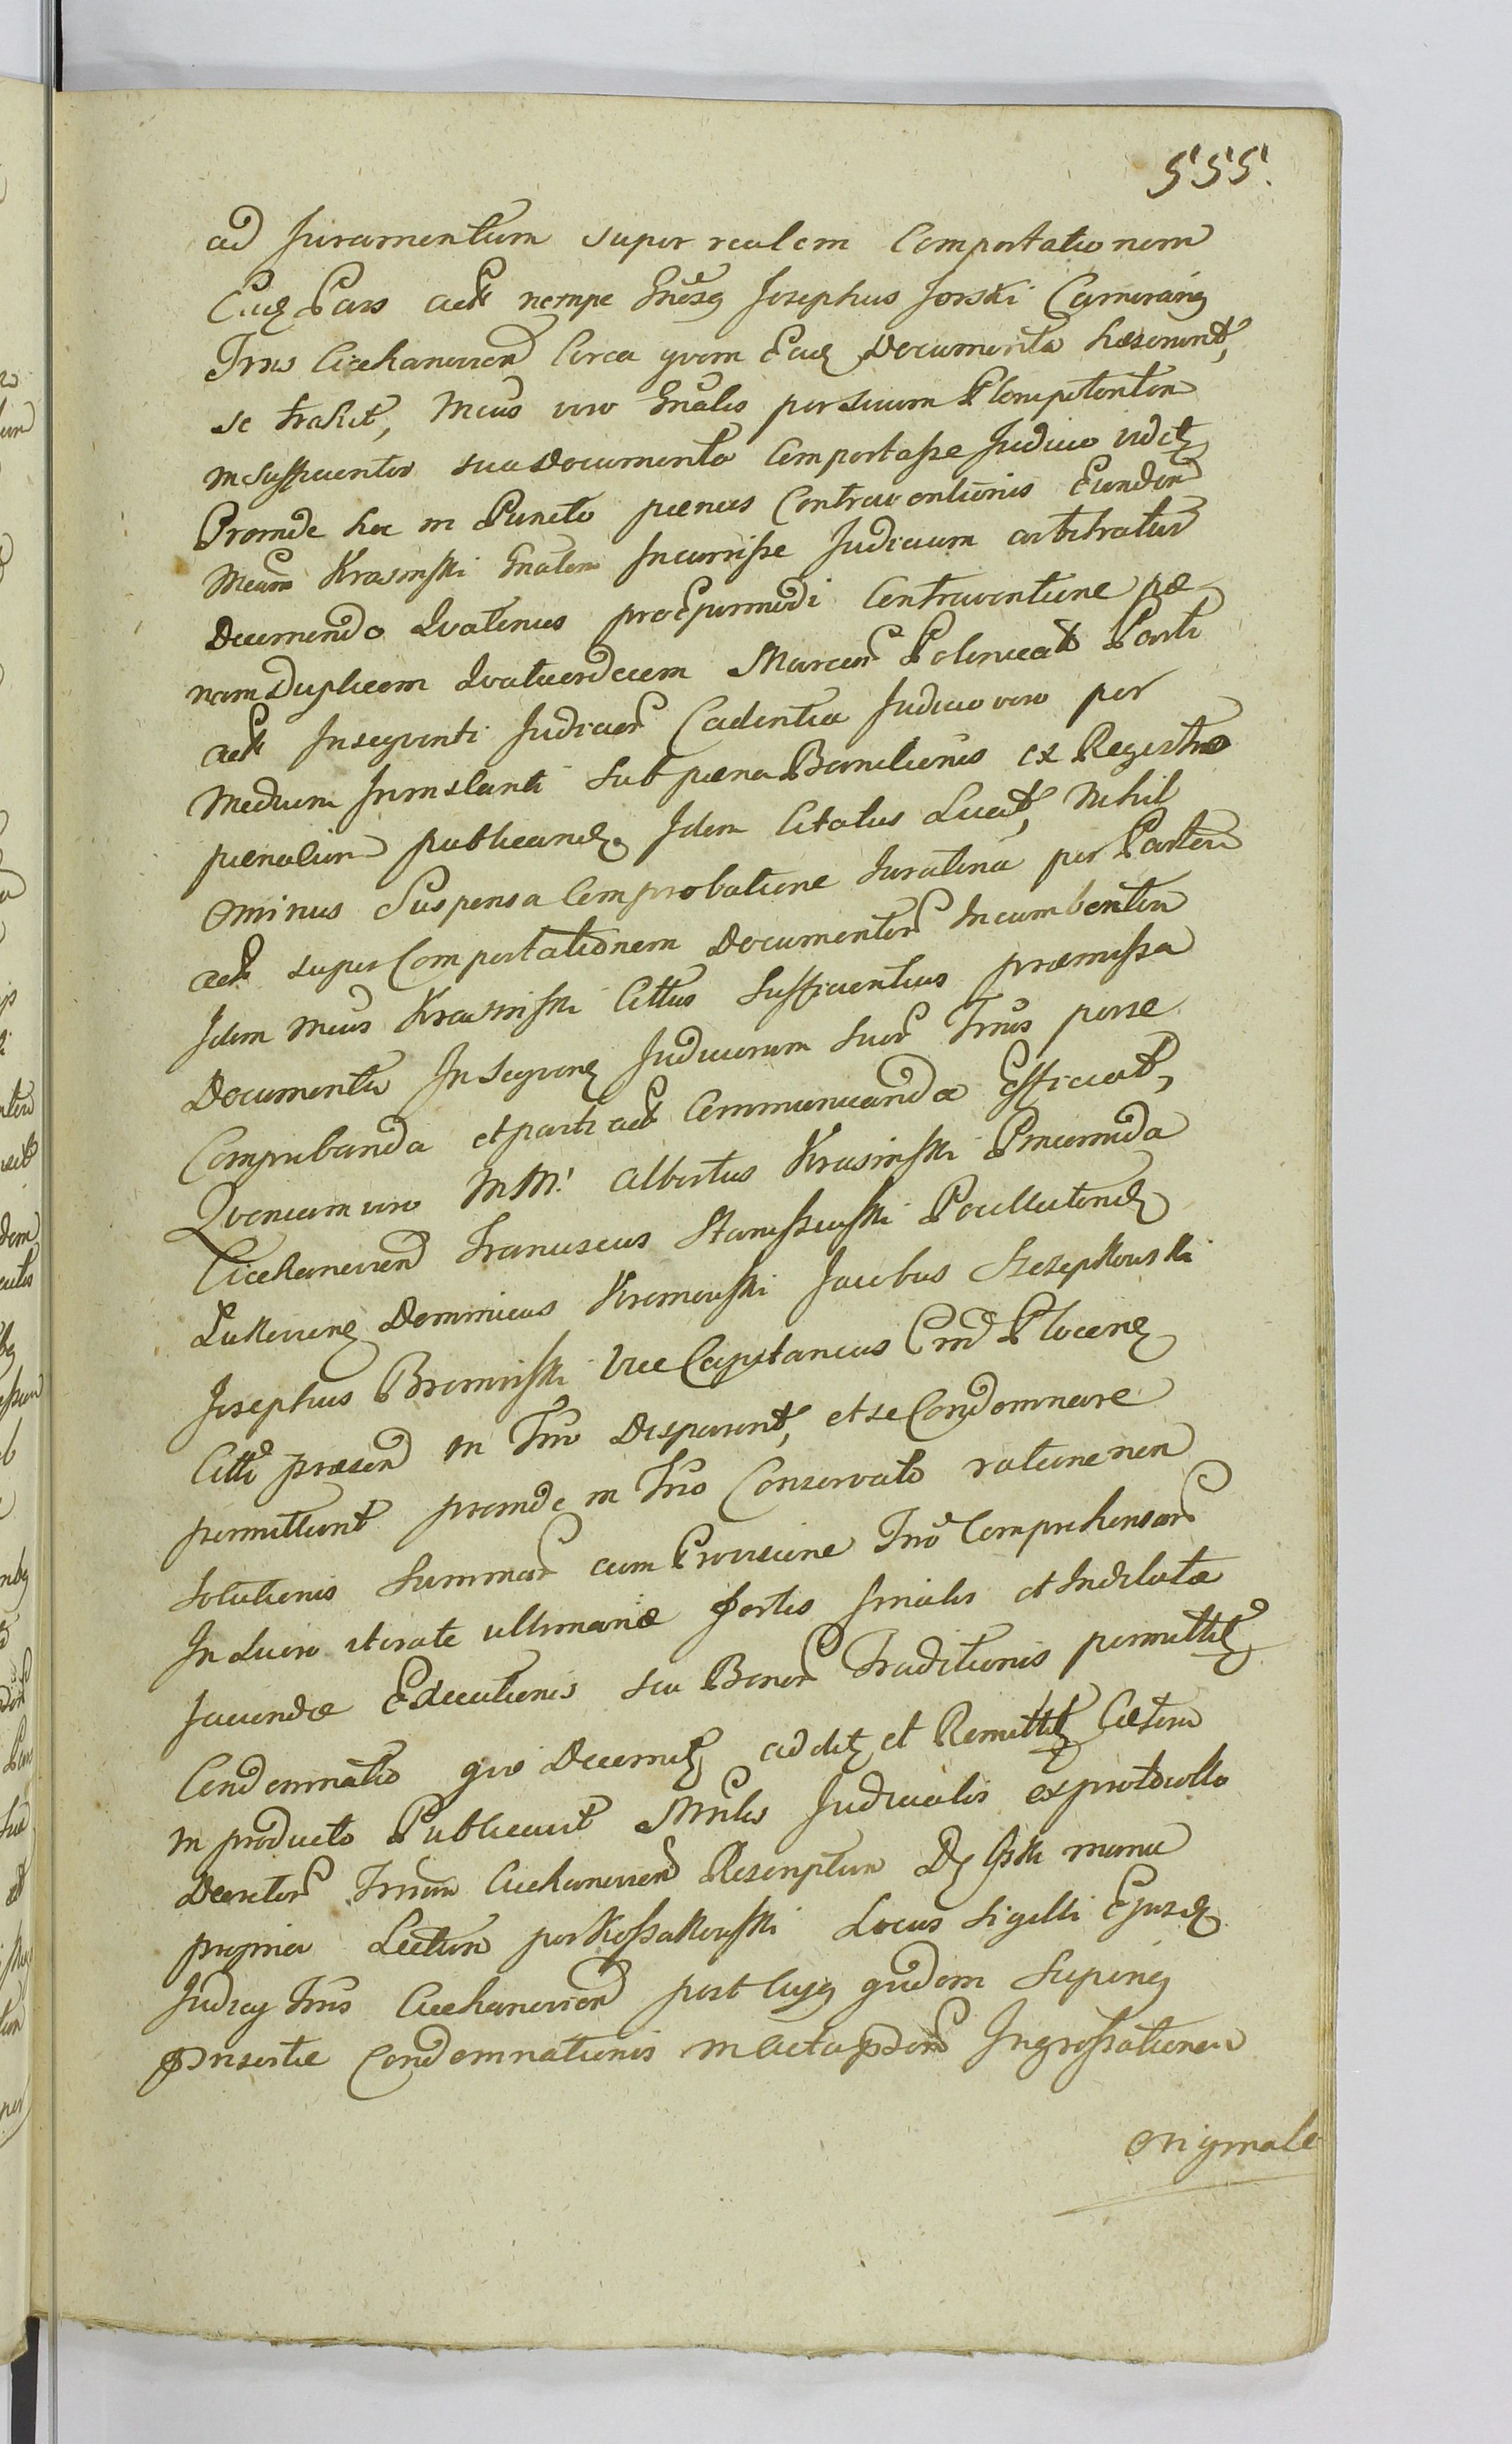 555.
ad Juramentum super realem Comportationem
Ejusq Pars act nempe Gnosq Josephus Jorski Camerariq
Trrus Ciechanovien Circa quem Eaeq Documenta haeserunt,
se trahit, Mcus vero Gnalis per suum Plenipotenten
insufficienter sua Documenta Comportasse Judicio videtq
Proinde hoc in Puncto paenas Contraventionis Eundem
Mcum Krasinski Gnalem Incurrisse Judicium arbitratur
Decernendo Quatenus pro Ejusmodi Contraventione pae
nam Duplicem Quatuordecem Marcar Polonical Parti
act Insequenti Judicior Cadentia Judicio vero per
Medium Ininstanti sub paena Banitionis ex Registro
paenalium publicandq Idem Citatus Luat, Nihil
ominus Suspensa Comprobatione Juratoria per Partem
act super Comportationem Documentor Incumbenten
Idem Mcus Krasinski Cittus Sufficientius praemissa
Documenta In Sequenq Judiciorum suor Trrus per se
Comprobanda et parti act Communicanda Efficiat,
Quoniam vero MM. Albertus Krasinski Pincernida
Ciechanovien Franciscus Staniszewski Pocillatoridq
Zakrocimq Dominicus Kromowski Jacobus Szczepkowski
Josephus Brominski Vice Capitaneus Crnd Plocenq
Citti praesen in Trno Disparent, et se Condemnare
permittunt proinde in Trno Conservato ratione non
solutionis Summar cum Provisione Trno Comprehensar
In Lucro iterate ultimariae fortis finalis et Indilatae
faciendae Executionis seu Bonor Traditionis permittitq
Condemnatio quo Decernitq additq et Remittitq Caetera
in producto Publicavit Mnlis Judicialis ex protocollo
Decretor Trrum Ciechanovien Rescriptum Dq Gski manu
propria Lectum per Kossakowski Locus Sigilli Ejusdq
Judicij Trrus Ciechanovien post Cujq quidem Superiq
Insertae Condemnationis in Acta psdem Ingrossationem
originale